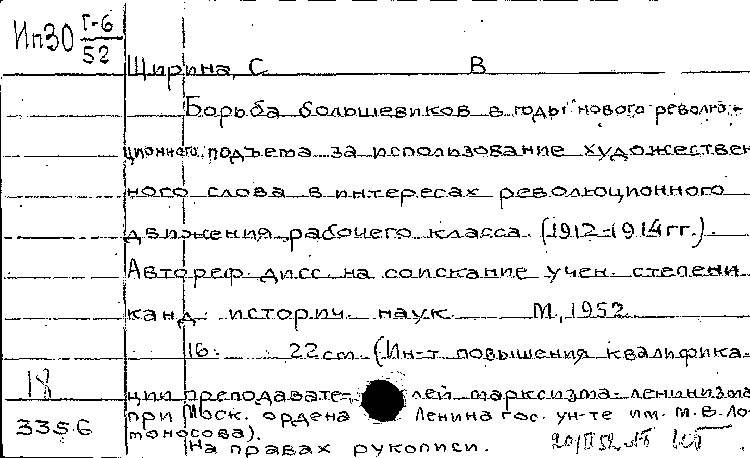 Ип30 Г-6
52
Щирина, С В
Борьба большевиков в годы нового револю-
ционного подъема за использование художествен
ного слова в интересах революционного
движения рабочего класса. (1912-1914 гг.).
Автореф. дисс. на соискание учен. степени
канд. историч. наук М, 1952
16. 22 см. (Ин-т повышения квалифика-
18
ции преподавателей марксизма-ленинизма
при Моск. ордена Ленина гос. ун-те им. М.В. Ло-
3356
моносова).
На правах рукописи.